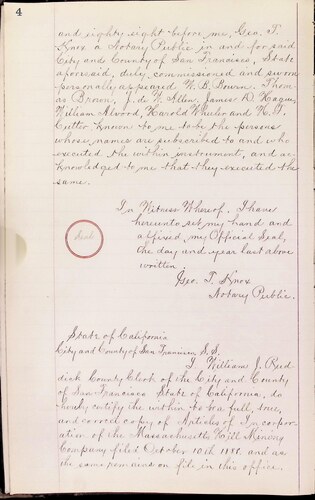 4
and eighty eight before me, Geo. T.
Knox a Notary Public in and for said
City and County of San Francisco, State
aforesaid, duly commissioned and sworn
personally appeared W. B. Bourn. Thom
as Brown, J. de W. Allen, James D. Hague,
William Alvord, Harold Wheeler and
Cutter Known to me to be the persons
whose names are subscribed to and who
executed the within instrument, and ac
knowledged to me that they executed the
same.
In Witness Whereof, I have
hereunto set my hand and
affixed my Official Seal,
the day and year last above
written.
Seal
Geo. T. Knox
Notary Public.
State of California
City and County of San Francisco S.S.
I William J. Rud
dick County Clerk of the City and County
of San Francisco State of California, do
hereby certify the within to be a full, true,
and correct copy of Articles of Incorpor
ation of the Massachusetts Hill Mining
Company filed October 10th 1888. and as
the same remains on file in this office.